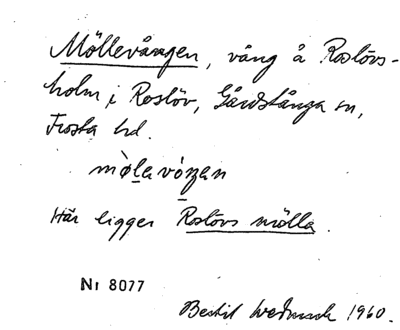 Möllevången, vång å Roslövs-
holm i Roslöv, Gårdstånga sn,
Frosta hd.
Här ligger Roslövs mölla.
Nr 8077
Bertil 1960.